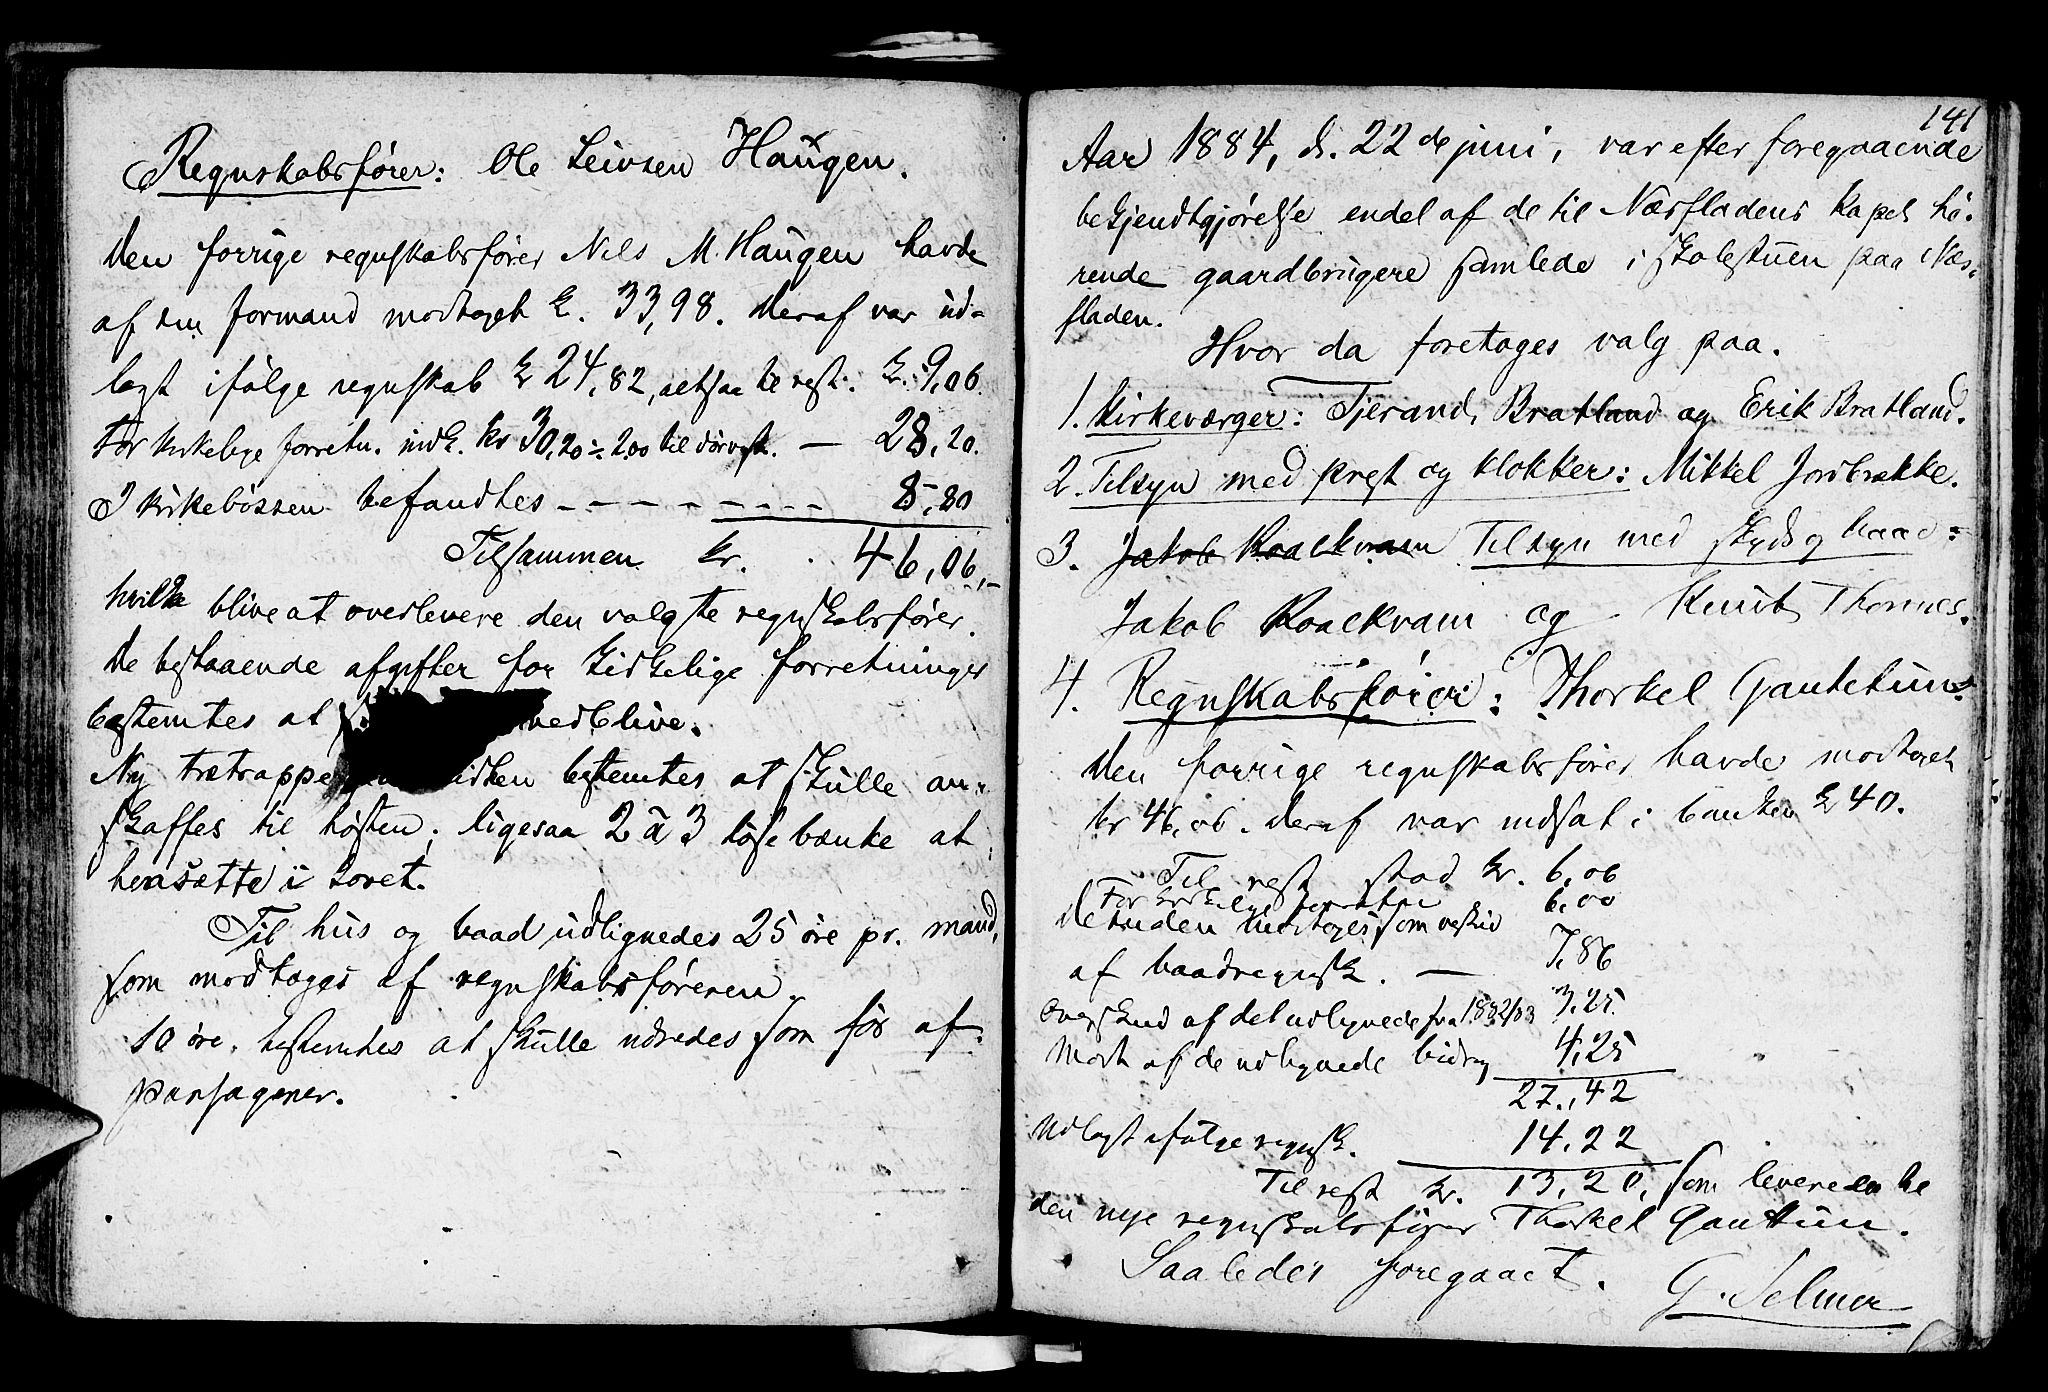 Regnskabsfører: Ole Leivsen Haugen.
Den forrige regnskabsfører Nels M. Haugen havde
af sin formand modtaget k. 33,98. Deraf var ud-
lagt ifølge regnskab k 24,82, altsaa til rest. k. 9,06
For kirkelige forretn. indk. kr 30,20 ÷ 2.00 til — 28,20.
I kirkebössen befandtes - - - - - - - - 8,80
Tilsammen kr. 46,06,-
hvilke blive at overlevere den valgte regnskabsfører.
De bestaaende afgifter for kirkelige forretninger
bestemtes at vedblive.
Ny trætrappe kirken bestemtes at skulle an-
skaffes til høsten; ligesaa 2 à 3 løse bænke at
hensætte i koret.
Til hus og baad udlignedes 25 øre pr. mand,
som modtages af regnskabsføreren.
10 øre. bestemtes at skulle udredes som før af
passagerer.
141
Aar 1884, d. 22 de juni, var efter foregaaende
bekjendtgjørelse endel af de til Næsfladens kapel hö-
rende gaardbrugere samlede i skolestuen paa Næs-
fladen.
Hvor da foretoges valg paa.
1. Kirkeværger: Tjerand Bratland og Erik Bratland.
2. Tilsyn med prest og klokker: Mikkel Jordbrække.
3. Jakob Roalkvam Tilsyn med skyds og baad:
Jakob Roalkvam og Knut Thornes.
4. Regnskabsfører: Thorkel Gautetun.
Den forrige regnskabsfører havde modtaget
kr 46,06. Deraf var indsat i banken k 40.
Til rest stod kr. 6,06
For kirkelige forretn 6,00
Desuden modtoges som restid
af baadregnsk. — 7,86
Overskud af det udlignede fra 1882/83 3,25.
Modt af de udlignede bidrag 4,25
27,42
Udlagt ifølge regnsk. 14,22
Til rest kr. 13,20, som leveredes til
den nye regnskabsfører Thorkel Gautetun.
Saaledes foregaaet.
G. Selmer